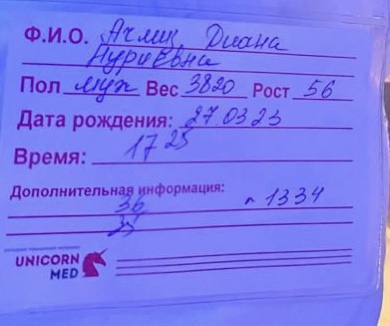 Ф.И.О. Ачмиз Диана
Нуриевна
Пол муж Вес 3820 Рост 56
Дата рождения: 27 03 23
Время: 17 25
Дополнительная информация:
36 1334
UNICORN
MED